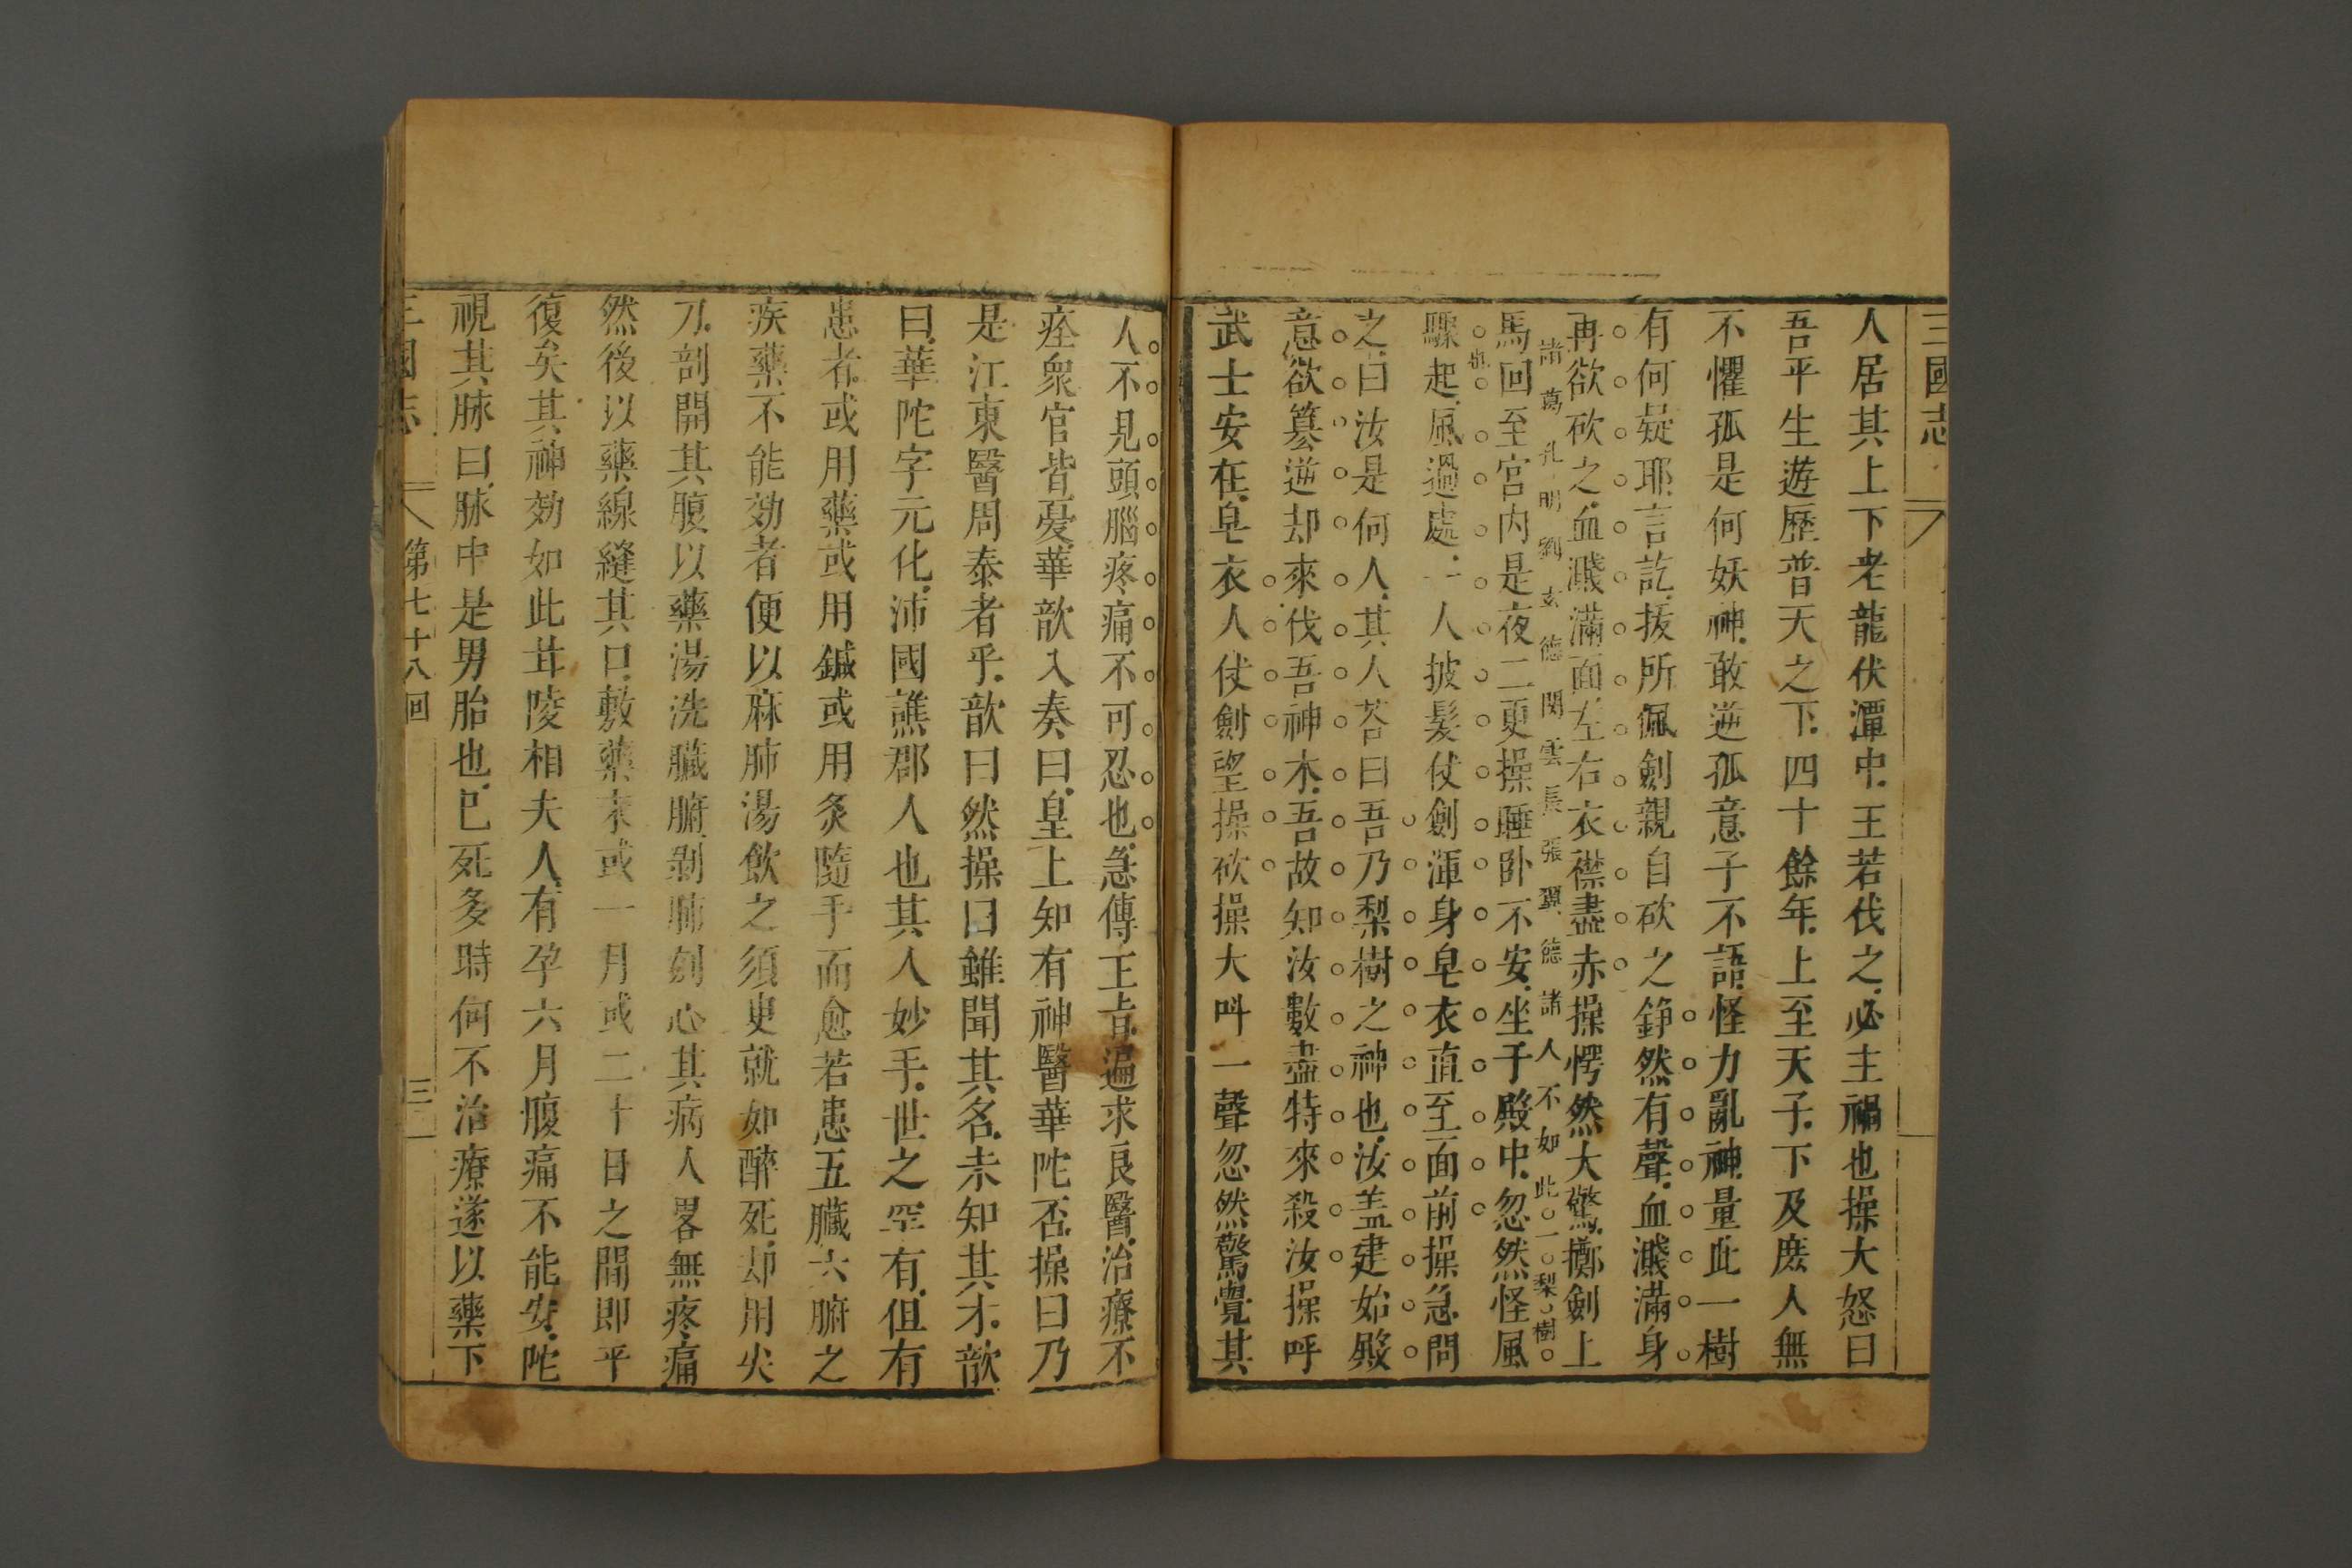 三國志
人居其上下老龍伏潭中王若伐之必主禍也操大怒曰
吾平生遊歷普天之下四十餘年上至天子下及庶人無
不懼孤是何妖神敢逆孤意子不語怪力亂神量此一樹
有何疑耶言訖拔所佩劍親自砍之錚然有聲血濺滿身
再欲砍之血濺滿面左右衣襟盡赤操愕然大驚擲劍上
諸葛孔明劉玄德関雲長張翼德諸人不如此一梨樹
也
馬回至宮内是夜二更操睡卧不安坐于殿中忽然怪風
驟起風過處一人披髮仗劍渾身皁衣直至面前操急問
之曰汝是何人其人荅曰吾乃梨樹之神也汝盖建始殿
意欲篡逆却來伐吾神木吾故知汝數盡特來殺汝操呼
武士安在皁衣人仗劍望操砍操大呌一聲忽然驚覺其
人不見頭腦疼痛不可忍也急傳王旨遍求良醫治療不
痊衆官皆憂華歆入奏曰皇上知有神醫華陀否操曰乃
是江東醫周泰者乎歆曰然操曰雖聞其名未知其才歆
曰華陀字元化沛國譙郡人也其人妙手世之罕有但有
患者或用藥或用鍼或用灸隨手而愈若患五臟六腑之
疾藥不能効者便以麻肺湯飲之須臾就如醉死却用尖
刀剖開其腹以藥湯洗臟腑剥肺刳心其病人畧無疼痛
然後以藥線縫其口敷藥末或一月或二十日之間即平
復矣其神効如此甘陵相夫人有孕六月腹痛不能安陀
視其脉曰脉中是男胎也已死多時何不治療遂以藥下
三國志 第七十八回 三